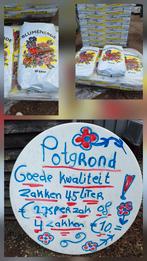 BLUMENERDE
Potgrond
Goede kwaliteit
Zakken 45 LITER
€ 2,75 PER ZAK OF
4 zakken € 10,=